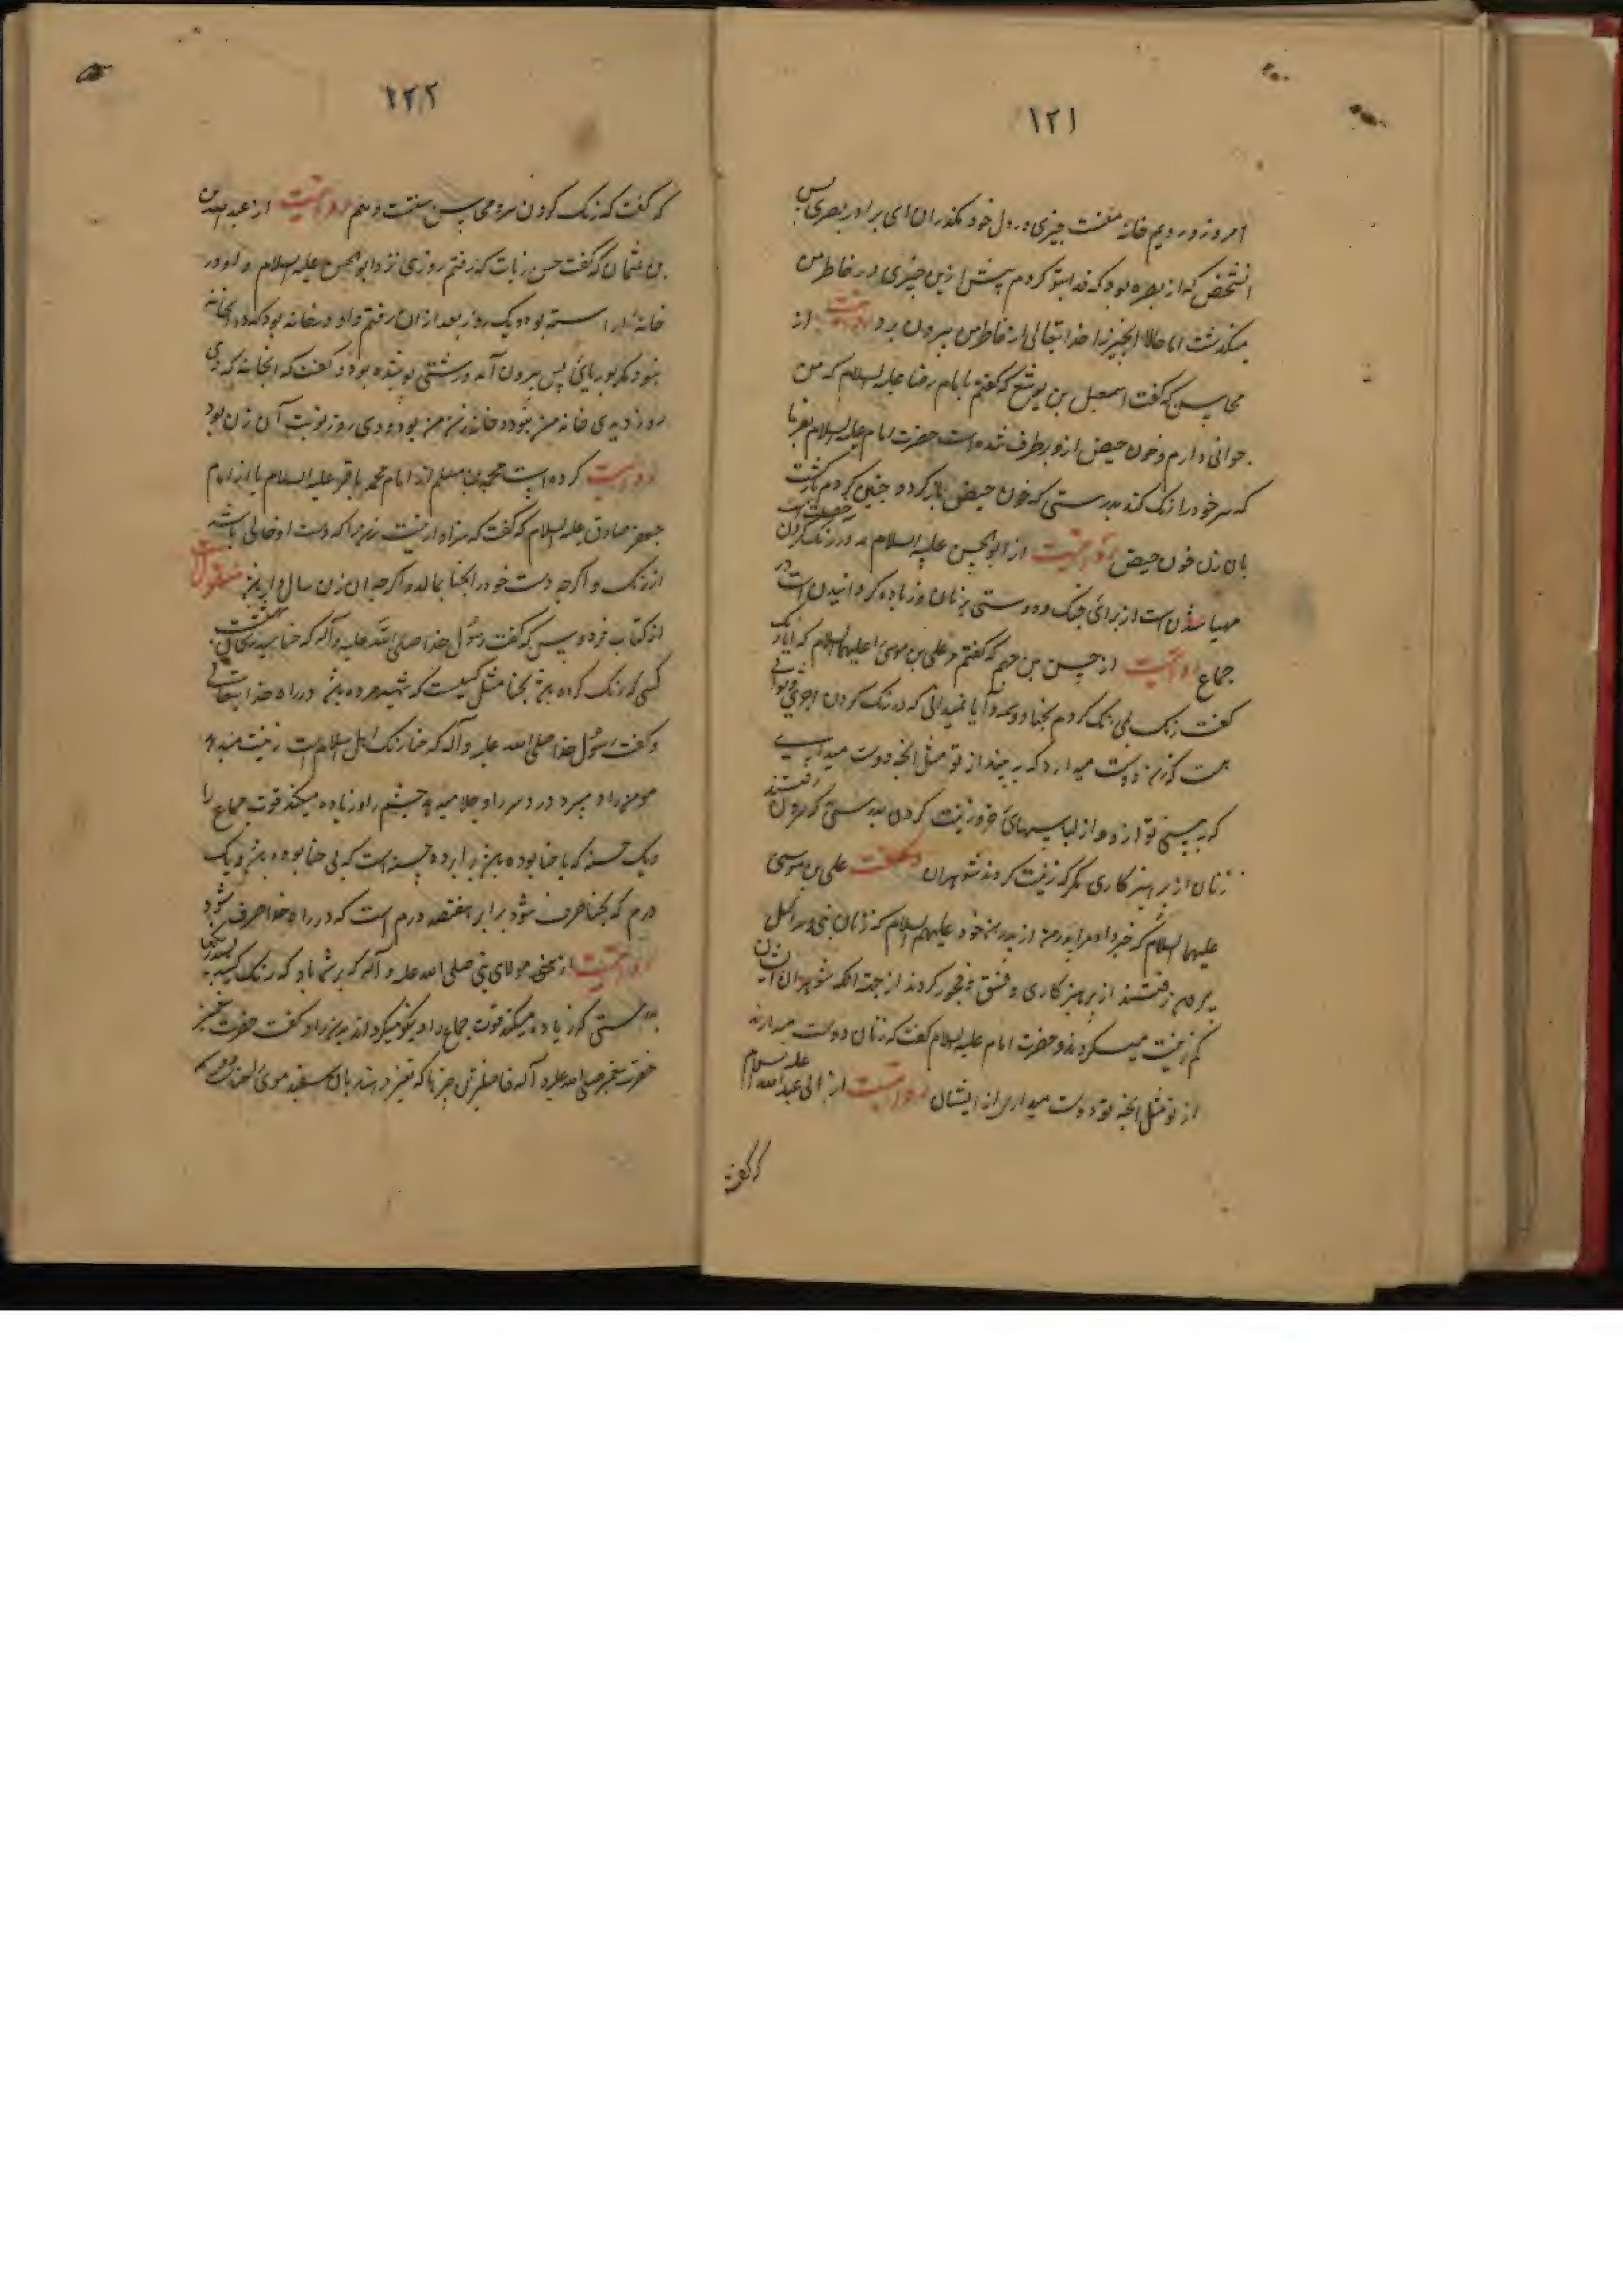 ۱۲۱
امروز در دیم خانه منست چیزی در دل خود مگذران ای برادر بصری پس
انشخص که از بصره بود که فدایتو کردم پیش ازین چیزی در خاطر من
میکذشت اما حالا انچیز را خدایتعالی از خاطر من بیرون برد روایتست از
محاسن که گفت اسمعیل بن یوشع که گفتم بامام رضا علیه السلام که من
جوانی دارم و خون حیض ازو برطرف شده است حضرت امام علیه السلام بفرما
که سر خود را رنک کند بدرستی که خون حیض باز کردد چنین کردم باز گشت
بان زن خون حیض روایتست از ابوالحسن علیه السلام که در رنک کردن
مهیا شدن است از برای جنک و دوستی بزنان و زیاده کردانیدن است در
جماع روایتست از حسن بن جهم که گفتم مر علی بن موسی را علیهما السلام که ایا رنک
گفت رنک بلی رنک کردم بحنا و وسمه و آیا نمیدانی که در رنک کردن اجری
هست که زن دوست میدارد که به بیند از تو مثل انچه دوست میداری
که به بینی تو ازو از لباسهای و زینت کردن بدرستی که بیرون رفتند
زنان از پرهیزکاری مکر که زینت کردند شوهران و گفت علی بن موسی
علیهما السلام که خبر داد مرا پدر من از پدر خود علیهم السلام که زنان بنی اسرائیل
بیرون رفتند از پرهیزکاری و فسق و فجور کردند از جهة انکه شوهران ایشان
کم زینت میکردند و حضرت امام علیه السلام گفت که زنان دوست میدارند
از تو مثل انچه تو دوست میداری از ایشان روایتست از ابی عبدالله علیه السلام
که گفت
۱۲۲
که گفت که رنک کردن سر و محاسن سنت و هم روایتست از عبدالله بن
بن عثمان که گفت حسن زیات که رفتم روزی نزد ابوالحسن علیه السلام و او در
خانه اراسته بود و یک روز بعد از ان رفتم و او در خانه بود که در انخانه
نبود مکر بوریائی پس بیرون آمد و رشتی پوشیده بود و گفت که انخانه که دی
روز دیدی خانه من نبود و خانه زن من بود و دی روز نوبت آن زن بود
روایت کرده است محمد بن مسلم از امام محمد باقر علیه السلام یا از امام
جعفر صادق علیه السلام که گفت که سزاوار نیست زن را که دست او خالی باشد
از رنک و اکرچه دست خود را بحنا بمالد و اکرچه ان زن سال دار باشد منقول است
از کتاب فردوس که گفت رسول خدا صلی الله علیه و آله که حنا سید ریحان بهشت است
کسی که رنک کرده باشد بحنا مثل کسیست که شهید مرده باشد در راه خدایتعالی
و گفت رسول خدا صلی الله علیه و آله که حنا رنک اهل اسلام است زینت میدهد
مومن را و میبرد درد سر را و جلا میدهد چشم را و زیاده میکند قوت جماع را
و یک حسنه که با حنا بوده باشد برابر ده حسنه است که بی حنا بوده باشد و یک
درم که بحنا صرف شود برابر هفتصد درم است که در راه خدا صرف شود
روایتست از مولای بنی صلی الله علیه و آله که بر شما باد که رنک کنید
بدرستی که زیاده میکند قوت جماع را و نیکو میکرداند بدن را و گفت حضرت
حضرت پیغمبر صلی الله علیه و آله فاضلترین چیزها که تغییر دهند بان سفیدی موی را حنا